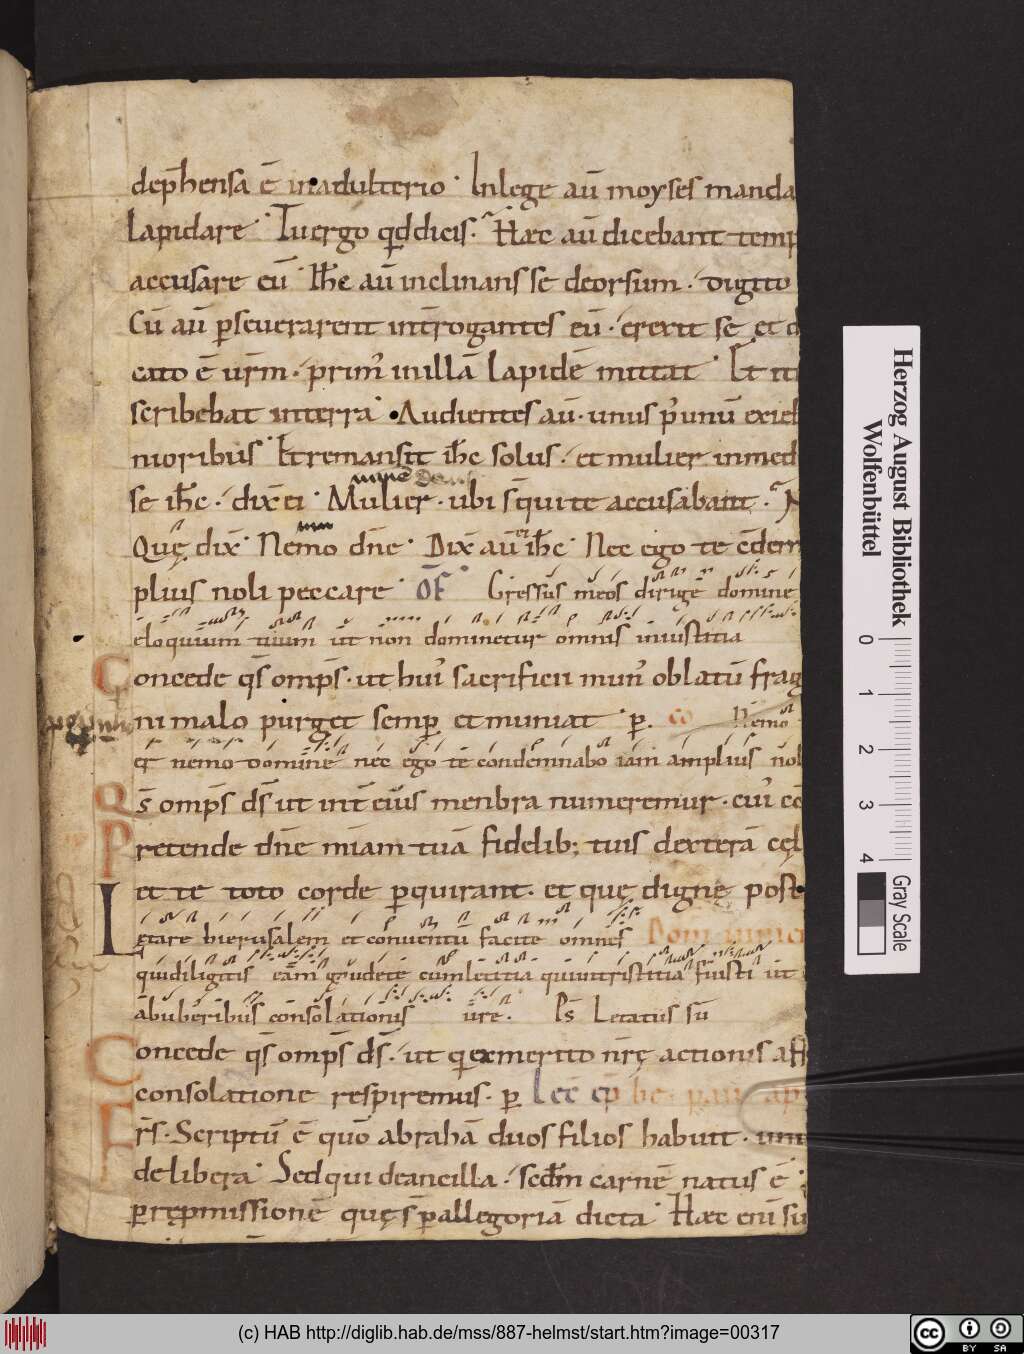 dep̄hensa ē in adulterio . In lege aū moyses manda
lapidare . Tu ergo qd dicis . Hæc aū dicebant temp
accusare eū . Ih̄c aū inclinans se deorsum . digito
Cū aū pseverarent intrōgantes eū . erexit se et d
cato ē ur̄m . prim' in illā lapidē mittat . Et it
scribebat in terra . Audientes aū . unus p' unū exieb
nioribus . Et remansit ih̄c solus . et mulier in med
se ih̄c . dix̄ ei . Mulier . ubi s̄ qui te accusabant .
Quę dix̄ . Nemo dn̄e . Dix̄ aū ei ih̄c . Nec ego te cōdem
plius noli peccare . OF Gressus meos dirige domine
eloquium tuum ut non dominetur omnis iniustitia
Concede qs̄ omps̄ . ut hui' sacrificii mun' oblatū frag
ni malo purget semp et muniat . p. co Nemo
et nemo domine nec ego te condemnabo iam amplius nol
Qs̄ omps̄ ds̄ ut int̄ eius menbra numeremur . cui' cō
Pretende dn̄e miam tuā fidelib; tuis dexterā cęl
et te toto corde pquirant . et quę digne post
Letare hierusalem et conventū facite omnes Dom in
qui diligitis eam gaudete cum lętitia qui in tristitia fuisti ut
ab uberibus consolationis ure . Ps̄ Letatus sū
Concede qs̄ omps̄ ds̄ . ut q ex merito nr̄ę actionis aff
consolatione respiremus . p Lec ep be pauli ap
Fr̄s . Scriptū ē quō abrahā duos filios habuit . unū
de libera . Sed qui de ancilla . scdm carnē natus ē
p repmissionē quę s̄ p allegoriā dicta . Hæc eni su
Herzog August Bibliothek
Wolfenbüttel
0 1 2 3 4
Gray Scale
(c) HAB http://diglib.hab.de/mss/887-helmst/start.htm?image=00317
cc BY SA